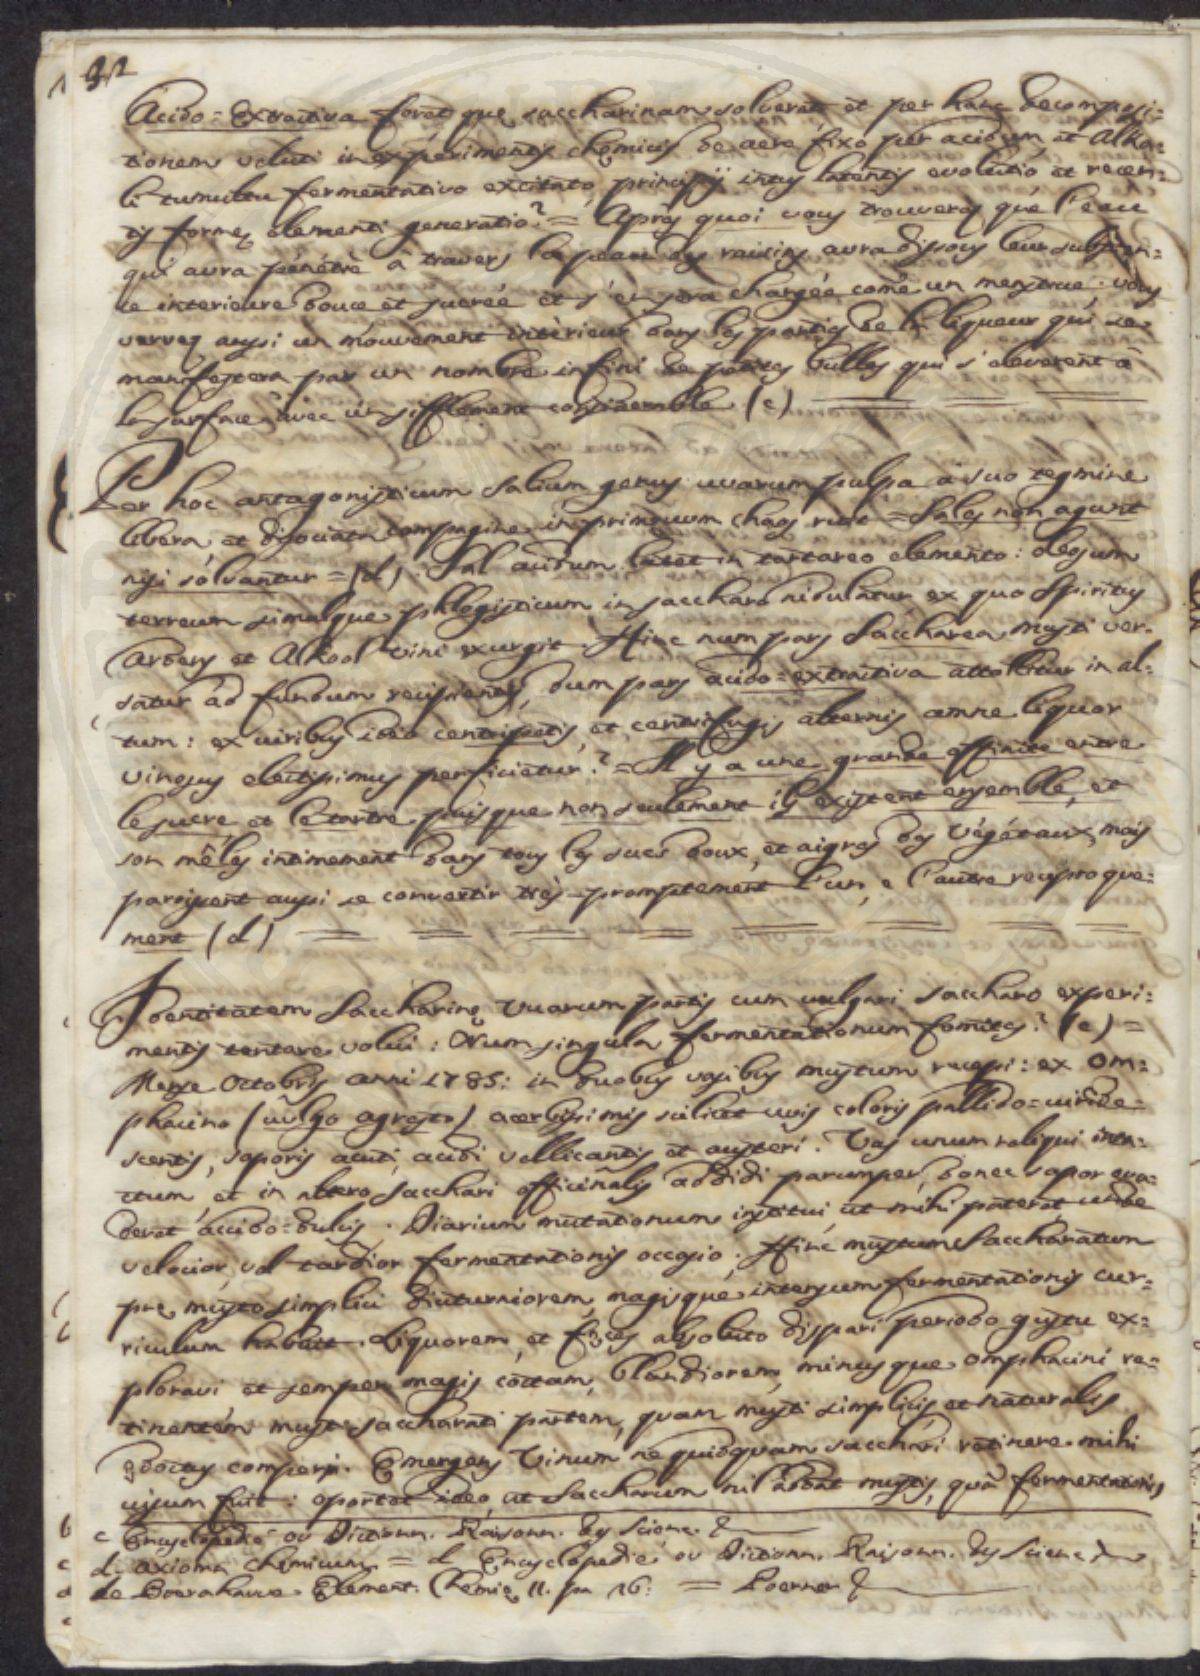 32
Acido=Extractiva foret que saccharinam solveret et per hanc decomposi=
tionem veluti in experimentis chemicis de aere fixo per acidum, et Alka=
li tumultu fermentativo excitato, principij intus latentis evolutio et recen=
tis formę elementi generatio? = Aprés quoi vous trouverez que l'eau
qui aura pénétrè à travers la peau des raisins aura dissous leur substan=
ce interieure douce et sucrée et s'en sera chargée come un menstrue: vous
verrez aussi un mouvement intérieur dans les parties de la liqueur qui se
manifestera par un nombre infini de petites bulles qui s'eleverent à
la surface avec un sifflement considerable (c)
Per hoc antagonisticum salium genus uvarum pulpa a suo tegmine
libera, et dissociata compagine in primevum chaos ruit = Sales non agunt
nisi solvantur = (d). Sal acidum latet in tartareo elemento: oleosum
terreum simulque phlogisticum in saccharo nidulatur, ex quo Spiritus
Ardens et Alkool vini exurgit. Hinc num pars Saccharea musti ver=
satur ad fundum recipientis, dum pars acido=extractiva attollitur in al=
tum: ex viribus ideo centripetis, et centrifugis alternis amne liquor
vineus electissimus perficietur? = Il y a une grande affinité entre
le sucre et le tartre puisque non seulement ils existent ensemble, et
son mêles intimement dans tous les sucs doux, et aigres des Végétaux, mais
paroissent aussi se convertir très-promptement l'un, e l'autre reciproque=
ment (d)
Identitatem Saccharinę Uvarum partis cum vulgari saccharo experi=
mentis tentare volui: Num singula fermentationum fomites? (e) =
Mense Octobris anni 1785: in duobus vasibus mustum recepi: ex Om=
phacino (vulgo agresto) acerbissimis scilicet uvis coloris pallido=viride=
scentis, saporis acuti, acidi vellicantis et austeri. Vas unum reliqui inta=
ctum, et in altero sacchari officinalis addidi parumper, donec sapor eva=
deret accido=dulcis. Diarium mutationum institui, ut mihi pateret unde
velocior, vel tardior fermentationis occasio. Hinc mustum Saccharatum
prę musto simplici diuturniorem, magisque intensum fermentationis cur=
riculum habuit. Liquorem, et fęces absoluto dispari periodo gustu ex=
ploravi et semper magis coctam, blandiorem, minusque omphacini re=
tinentem musti saccharati partem, quam musti simplicis et naturalis
edoctus comperi. Emergens Vinum ne quidquam sacchari retinere mihi
visum fuit: oportet ideo, ut Saccharum nil addat mustis, quà fermentationis
c Encyclopedie ou Dictionn. Raisonn. des Scienc.
d. axioma Chemicum = d Encyclopedie ou Dictionn. Raisonn. des Scienc.
de Boerahave Element. Chemię II. pa 16: = Poerner